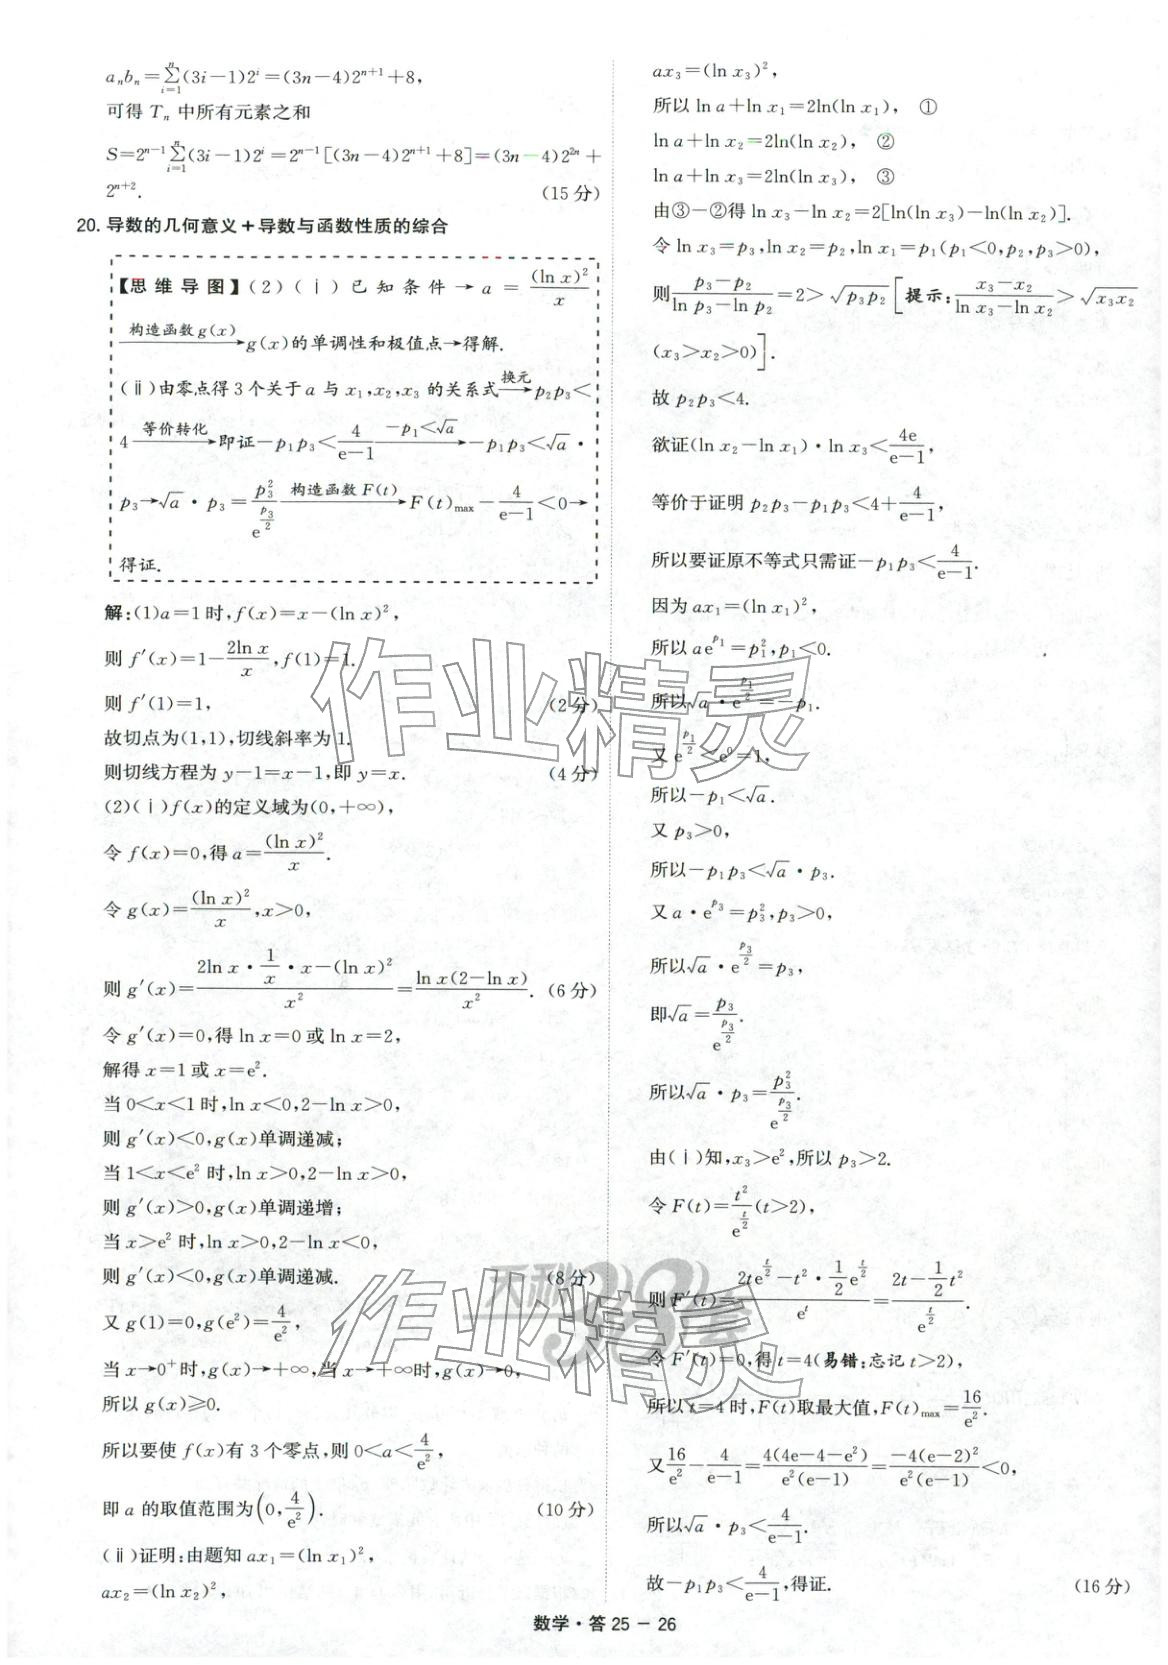 aₙbₙ=∑ⁿᵢ₌₁(3i−1)2ⁱ=(3n−4)2ⁿ⁺¹+8,
可得 Tₙ 中所有元素之和
S=2ⁿ⁻¹∑ⁿᵢ₌₁(3i−1)2ⁱ=2ⁿ⁻¹[(3n−4)2ⁿ⁺¹+8]=(3n−4)2²ⁿ+
2ⁿ⁺². (15 分)
20. 导数的几何意义+导数与函数性质的综合
【思维导图】(2)(ⅰ)已知条件→a=(ln x)²/x
构造函数 g(x)→g(x)的单调性和极值点→得解.
(ⅱ)由零点得 3 个关于 a 与 x₁,x₂,x₃ 的关系式 换元→p₂p₃<
4 等价转化→即证−p₁p₃<4/(e−1) −p₁<√a→−p₁p₃<√a·
p₃→√a·p₃=p₃²/e^(p₃/2) 构造函数 F(t)→F(t)max−4/(e−1)<0→
得证.
解:(1)a=1 时,f(x)=x−(ln x)²,
则 f′(x)=1−2ln x/x,f(1)=1.
则 f′(1)=1, (2 分)
故切点为(1,1),切线斜率为 1.
则切线方程为 y−1=x−1,即 y=x. (4 分)
(2)(ⅰ)f(x)的定义域为(0,+∞),
令 f(x)=0,得 a=(ln x)²/x.
令 g(x)=(ln x)²/x,x>0,
则 g′(x)=(2ln x·1/x·x−(ln x)²)/x²=ln x(2−ln x)/x². (6 分)
令 g′(x)=0,得 ln x=0 或 ln x=2,
解得 x=1 或 x=e².
当 0<x<1 时,ln x<0,2−ln x>0,
则 g′(x)<0,g(x)单调递减;
当 1<x<e² 时,ln x>0,2−ln x>0,
则 g′(x)>0,g(x)单调递增;
当 x>e² 时,ln x>0,2−ln x<0,
则 g′(x)<0,g(x)单调递减. (8 分)
又 g(1)=0,g(e²)=4/e²,
当 x→0⁺时,g(x)→+∞,当 x→+∞时,g(x)→0,
所以 g(x)≥0.
所以要使 f(x)有 3 个零点,则 0<a<4/e²,
即 a 的取值范围为(0,4/e²). (10 分)
(ⅱ)证明:由题知 ax₁=(ln x₁)²,
ax₂=(ln x₂)²,
ax₃=(ln x₃)²,
所以 ln a+ln x₁=2ln(ln x₁), ①
ln a+ln x₂=2ln(ln x₂), ②
ln a+ln x₃=2ln(ln x₃), ③
由③−②得 ln x₃−ln x₂=2[ln(ln x₃)−ln(ln x₂)].
令 ln x₃=p₃,ln x₂=p₂,ln x₁=p₁(p₁<0,p₂,p₃>0),
则(p₃−p₂)/(ln p₃−ln p₂)=2>√(p₃p₂)[提示:(x₃−x₂)/(ln x₃−ln x₂)>√(x₃x₂)
(x₃>x₂>0)].
故 p₂p₃<4.
欲证(ln x₂−ln x₁)·ln x₃<4e/(e−1),
等价于证明 p₂p₃−p₁p₃<4+4/(e−1),
所以要证原不等式只需证−p₁p₃<4/(e−1).
因为 ax₁=(ln x₁)²,
所以 ae^(p₁)=p₁²,p₁<0.
所以√a·e^(p₁/2)=−p₁.
又 e^(p₁/2)<e⁰=1,
所以−p₁<√a.
又 p₃>0,
所以−p₁p₃<√a·p₃.
又 a·e^(p₃)=p₃²,p₃>0,
所以√a·e^(p₃/2)=p₃,
即√a=p₃/e^(p₃/2).
所以√a·p₃=p₃²/e^(p₃/2).
由(ⅰ)知,x₃>e²,所以 p₃>2.
令 F(t)=t²/e^(t/2)(t>2),
则 F′(t)=(2te^(t/2)−t²·1/2 e^(t/2))/eᵗ=(2t−1/2 t²)/e^(t/2).
令 F′(t)=0,得 t=4(易错:忘记 t>2),
所以 t=4 时,F(t)取最大值,F(t)max=16/e².
又16/e²−4/(e−1)=4(4e−4−e²)/(e²(e−1))=−4(e−2)²/(e²(e−1))<0,
所以√a·p₃<4/(e−1).
故−p₁p₃<4/(e−1),得证. (16 分)
数学·答 25 − 26
作业精灵
作业精灵
天利38套